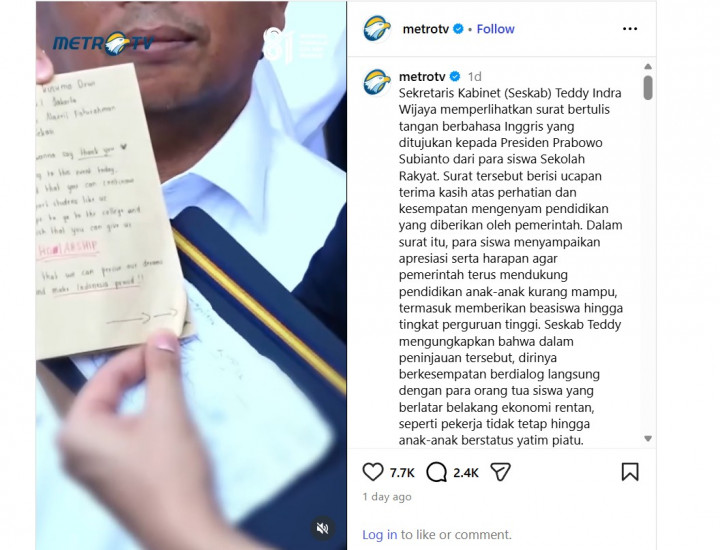 METRO TV
81
thank you
SCHOLARSHIP
that we can
and make Indonesia proud!!
metrotv • Follow
metrotv 1d
Sekretaris Kabinet (Seskab) Teddy Indra
Wijaya memperlihatkan surat bertulis
tangan berbahasa Inggris yang
ditujukan kepada Presiden Prabowo
Subianto dari para siswa Sekolah
Rakyat. Surat tersebut berisi ucapan
terima kasih atas perhatian dan
kesempatan mengenyam pendidikan
yang diberikan oleh pemerintah. Dalam
surat itu, para siswa menyampaikan
apresiasi serta harapan agar
pemerintah terus mendukung
pendidikan anak-anak kurang mampu,
termasuk memberikan beasiswa hingga
tingkat perguruan tinggi. Seskab Teddy
mengungkapkan bahwa dalam
peninjauan tersebut, dirinya
berkesempatan berdialog langsung
dengan para orang tua siswa yang
berlatar belakang ekonomi rentan,
seperti pekerja tidak tetap hingga
anak-anak berstatus yatim piatu.
7.7K 2.4K
1 day ago
Log in to like or comment.